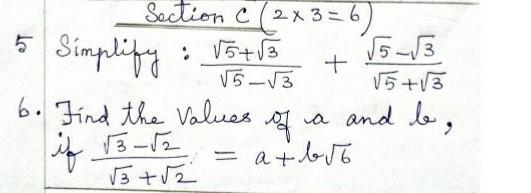 Section C (2 x 3 = 6)
5 Simplify : (√5+√3)/(√5-√3) + (√5-√3)/(√5+√3)
6. Find the Values of a and b,
if (√3-√2)/(√3+√2) = a+b√6